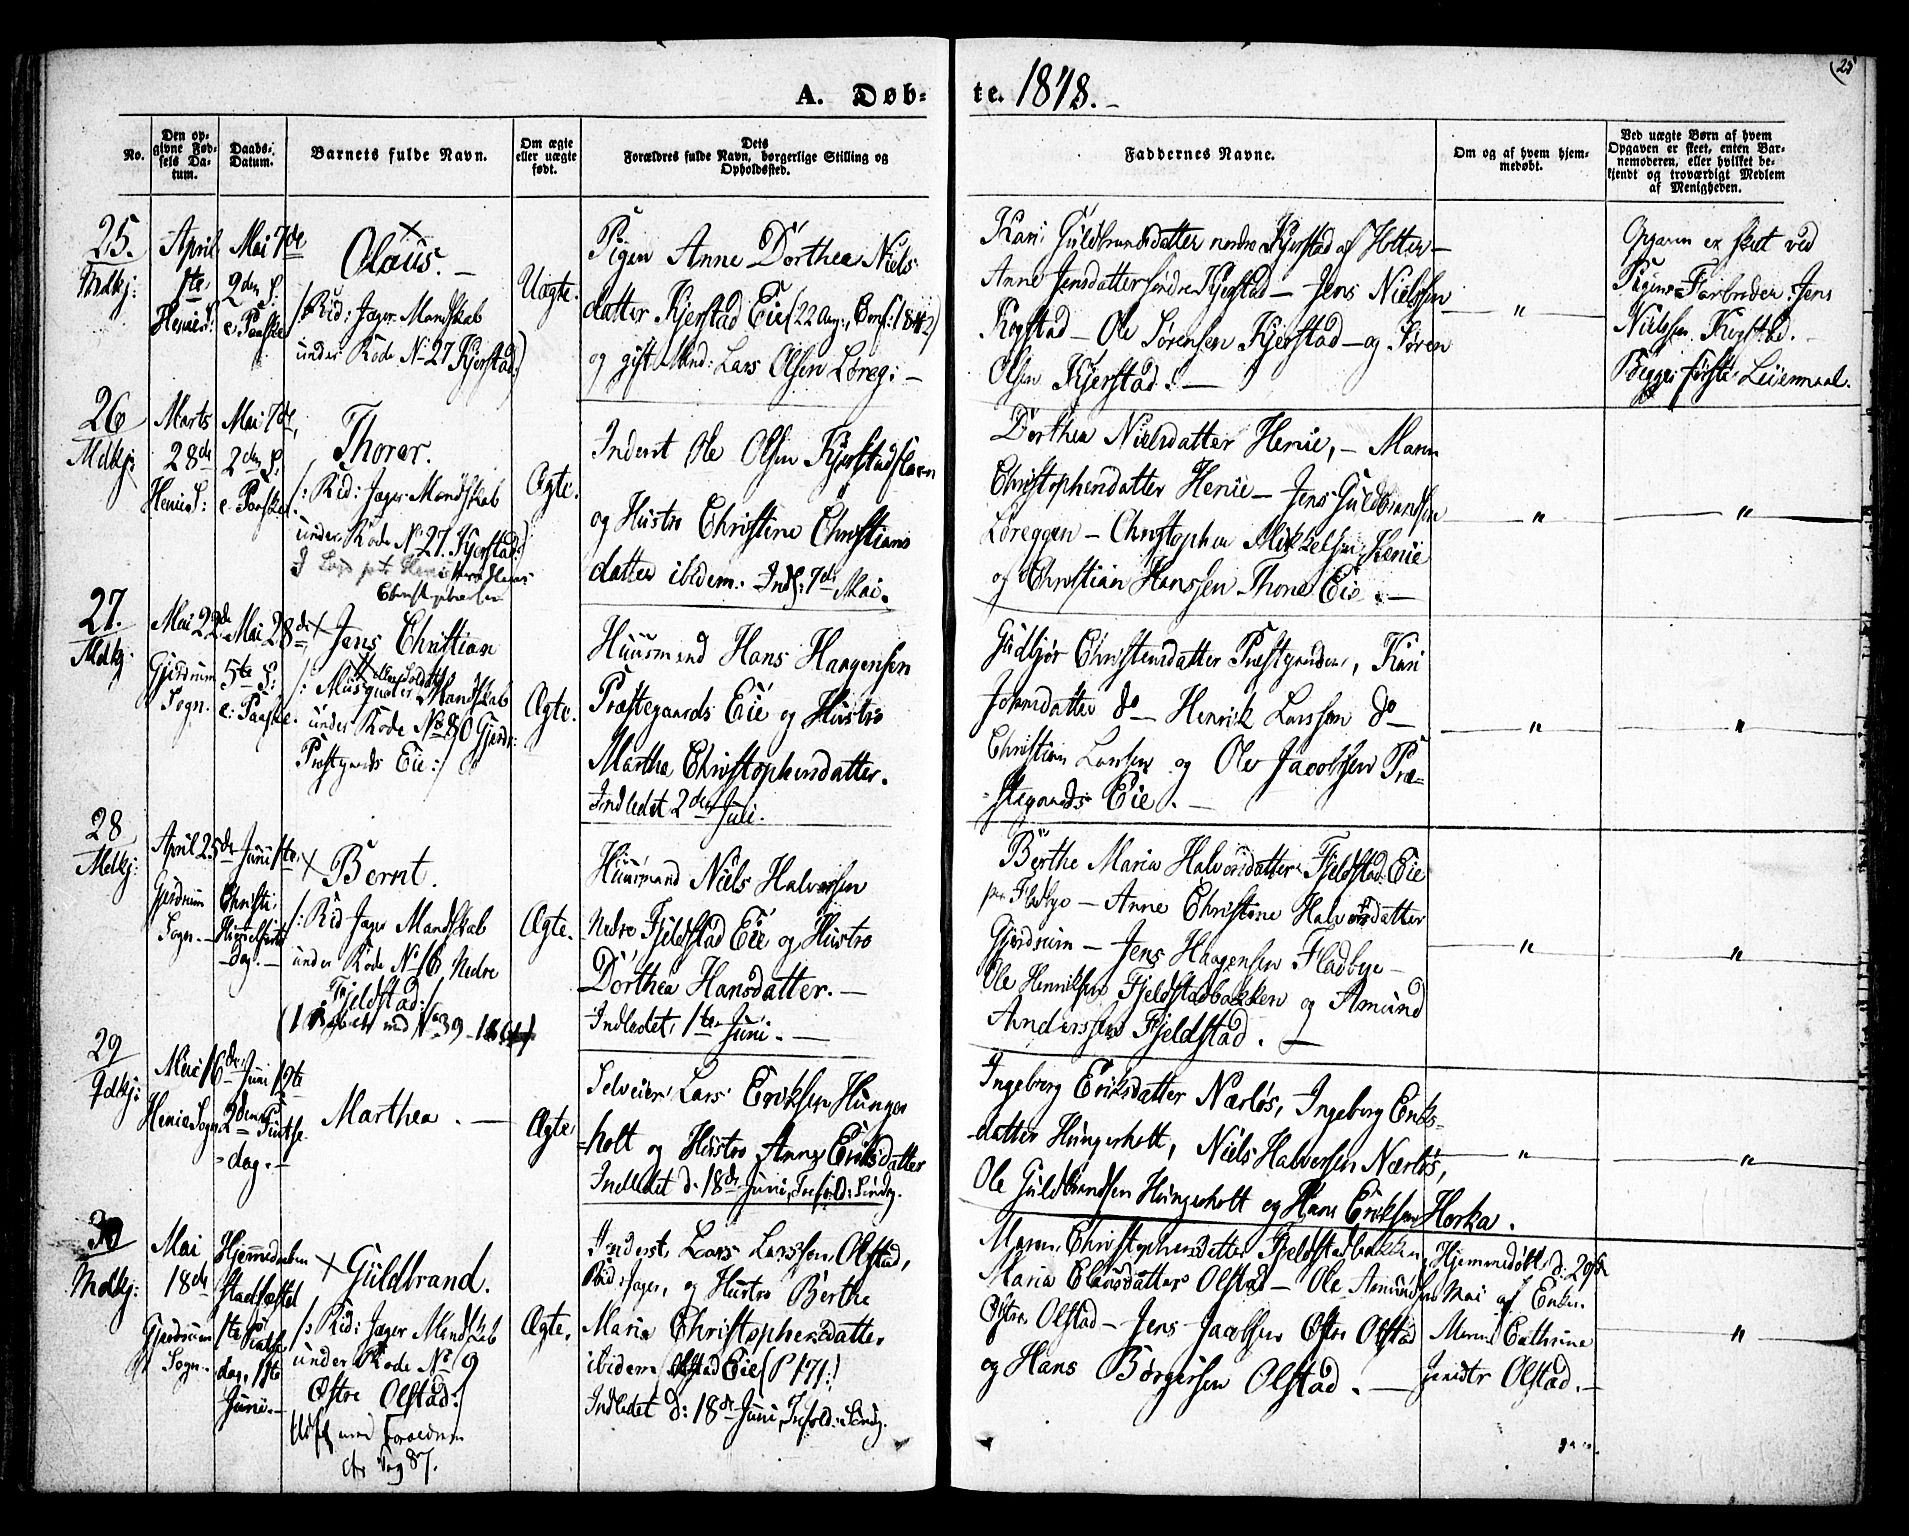 25
A. Døb-
te. 1848.
No.
Den op-
givne Fød-
sels Da-
tum.
Daabs-
Datum.
Barnets fulde Navn.
Om ægte
eller uægte
født.
Dets
Forældres fulde Navn, borgerlige Stilling og
Opholdssted.
Faddernes Navne.
Om og af hvem hjem-
medøbt.
Ved uægte Børn af hvem
Opgaven er skeet, enten Bar-
nemoderen, eller hvilket be-
kjendt og troværdigt Medlem
af Menigheden.
25.
Mdkj:
April
1te
Henie S:
Mai 7de
2den S:
e: Paaske
Olaus. –
/: Rid: Jæger Mandskab
under Rode No 27 Kjerstad:/
Uægte.
Pigen Anne Dorthea Niels
datter Kjerstad Eie (22 Aar, Conf: 1842)
og gift Mand: Lars Olsen Løreg: –
Kari Guldbrandsdatter nordre Kjerstad af Holter –
Anne Jensdatter søndre Kjerstad – Jens Nielsen
Kogstad – Ole Sørensen Kjerstad – og Søren
Olsen Kjerstad. –
"
Opgaven er skeet ved
Pigens Farbroder Jens
Nielsen Kogstad. –
Begges første Leiermaal.
26
Mdkj:
Marts
28de
Henie S:
Mai 7de,
2den S:
e: Paaske.
Thorer.
/: Rid: Jæger Mandskab
under Rode No 27. Kjerstad:/
Christophersen
Ægte.
Inderst Ole Olsen Kjerstad
og Hustro Christine Christians
datter ibidem. Indl: 7de Mai.
Dorthea Nielsdatter Henie, – Maren
Christophersdatter Henie – Jens Guldbrandsen
Løreggen – Christopher Mikkelsen Henie
og Christian Hanssen Thone Eie. –
"
"
27.
Mdkj
Mai 22de
Gjerdrum
Sogn.
Mai 28de
5te S:
e: Paaske.
Jens Christian
/: Musqueteer Mandskab
under Rode No 80 Gjerdr:
Præstgaards Eie:/
Ægte.
Huusmand Hans Haagensen
Præstegaards Eie og Hustro
Martha Christophersdatter.
Indledet 2den Juli.
Gudbjør Christensdatter Præstgaarden, Kari
Johnsdatter do – Henrik Larssen do –
Christian Larssen og Ole Jacobsen Præ-
stegaards Eie. –
"
"
28
Mdkj:
April 25de
Gjerdrum
Sogn. –
Juni 1te,
Christi
Himmelfarts
Dag. –
Bernt.
/: Rid Jæger Mandskab
under Rode No 16 Nedre
Fjeldstad:/
Ægte.
Huusmand Niels Halvorsen
Nedre Fjeldstad Eie og Hustro
Dorthea Hansdatter. –
Indledet 1te Juni. –
Berthe Maria Halvorsdatter Fjeldstad Eie
Fladbye – Anne Christine Halvorsdatter
Gjerdrum – Jens Haagensen Fladbye –
Ole Henriksen Fjeldstadbakken og Amund
Anderssen Fjeldstad. –
"
"
29
Qdkj:
Mai 16de
Henie Sogn
Juni 19te
2den Pintse-
dag. –
Marthea. –
Ægte
Selveier Lars Eriksen Hunger
holt og Hustro Anne Eriksdatter
Indledet d: 18de Juni, Trefold: Sønd:
Ingeborg Eriksdatter Nærløs, Ingeborg Eriks-
datter Hungerholt, Niels Halvorsen Nærløs,
Ole Guldbrandsen Hungerholt og Hans Eriksen Horka.
"
"
30
Mdkj:
Mai
18de
Gjerdrum
Sogn. –
Hjemmedaaben
Stadfæstet
1te
dag, 11te
Juni. –
Guldbrand.
/: Rid: Jæger Mandskab
under Rode No 19
Østre Olstad:/
Ægte.
Inderst Lars Larssen Olstad,
Rid: Jæger, og Hustro Berthe
Maria Christophersdatter
ibidem Olstad Eie (P 171:)
Indledet d: 18de Juni, Trefold: Sønd:
Maren Christophersdatter Fjeldstadbakken,
Maria Clausdatter Olstad – Ole Amundsen
Østre Olstad – Jens Jacobsen Østre Olstad
og Hans Børgersen Olstad. –
Hjemmedøbt d: 29de
Mai af Enken
Maren Cathrine
Jensdtr Olstad. –
"